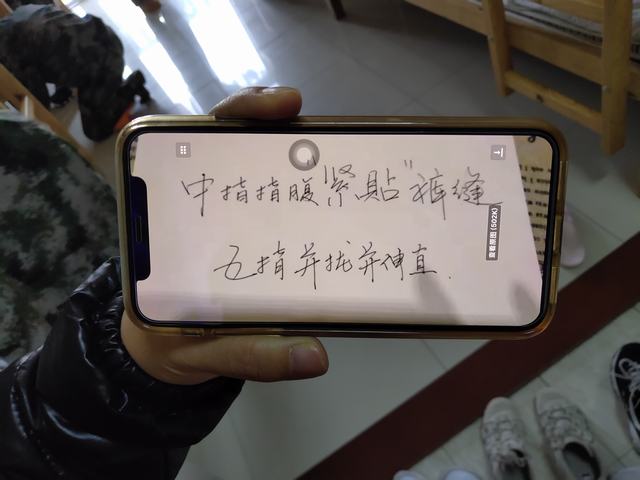 中指指腹"紧貼"裤缝
五指并拢并伸直.
查看原图(502K)